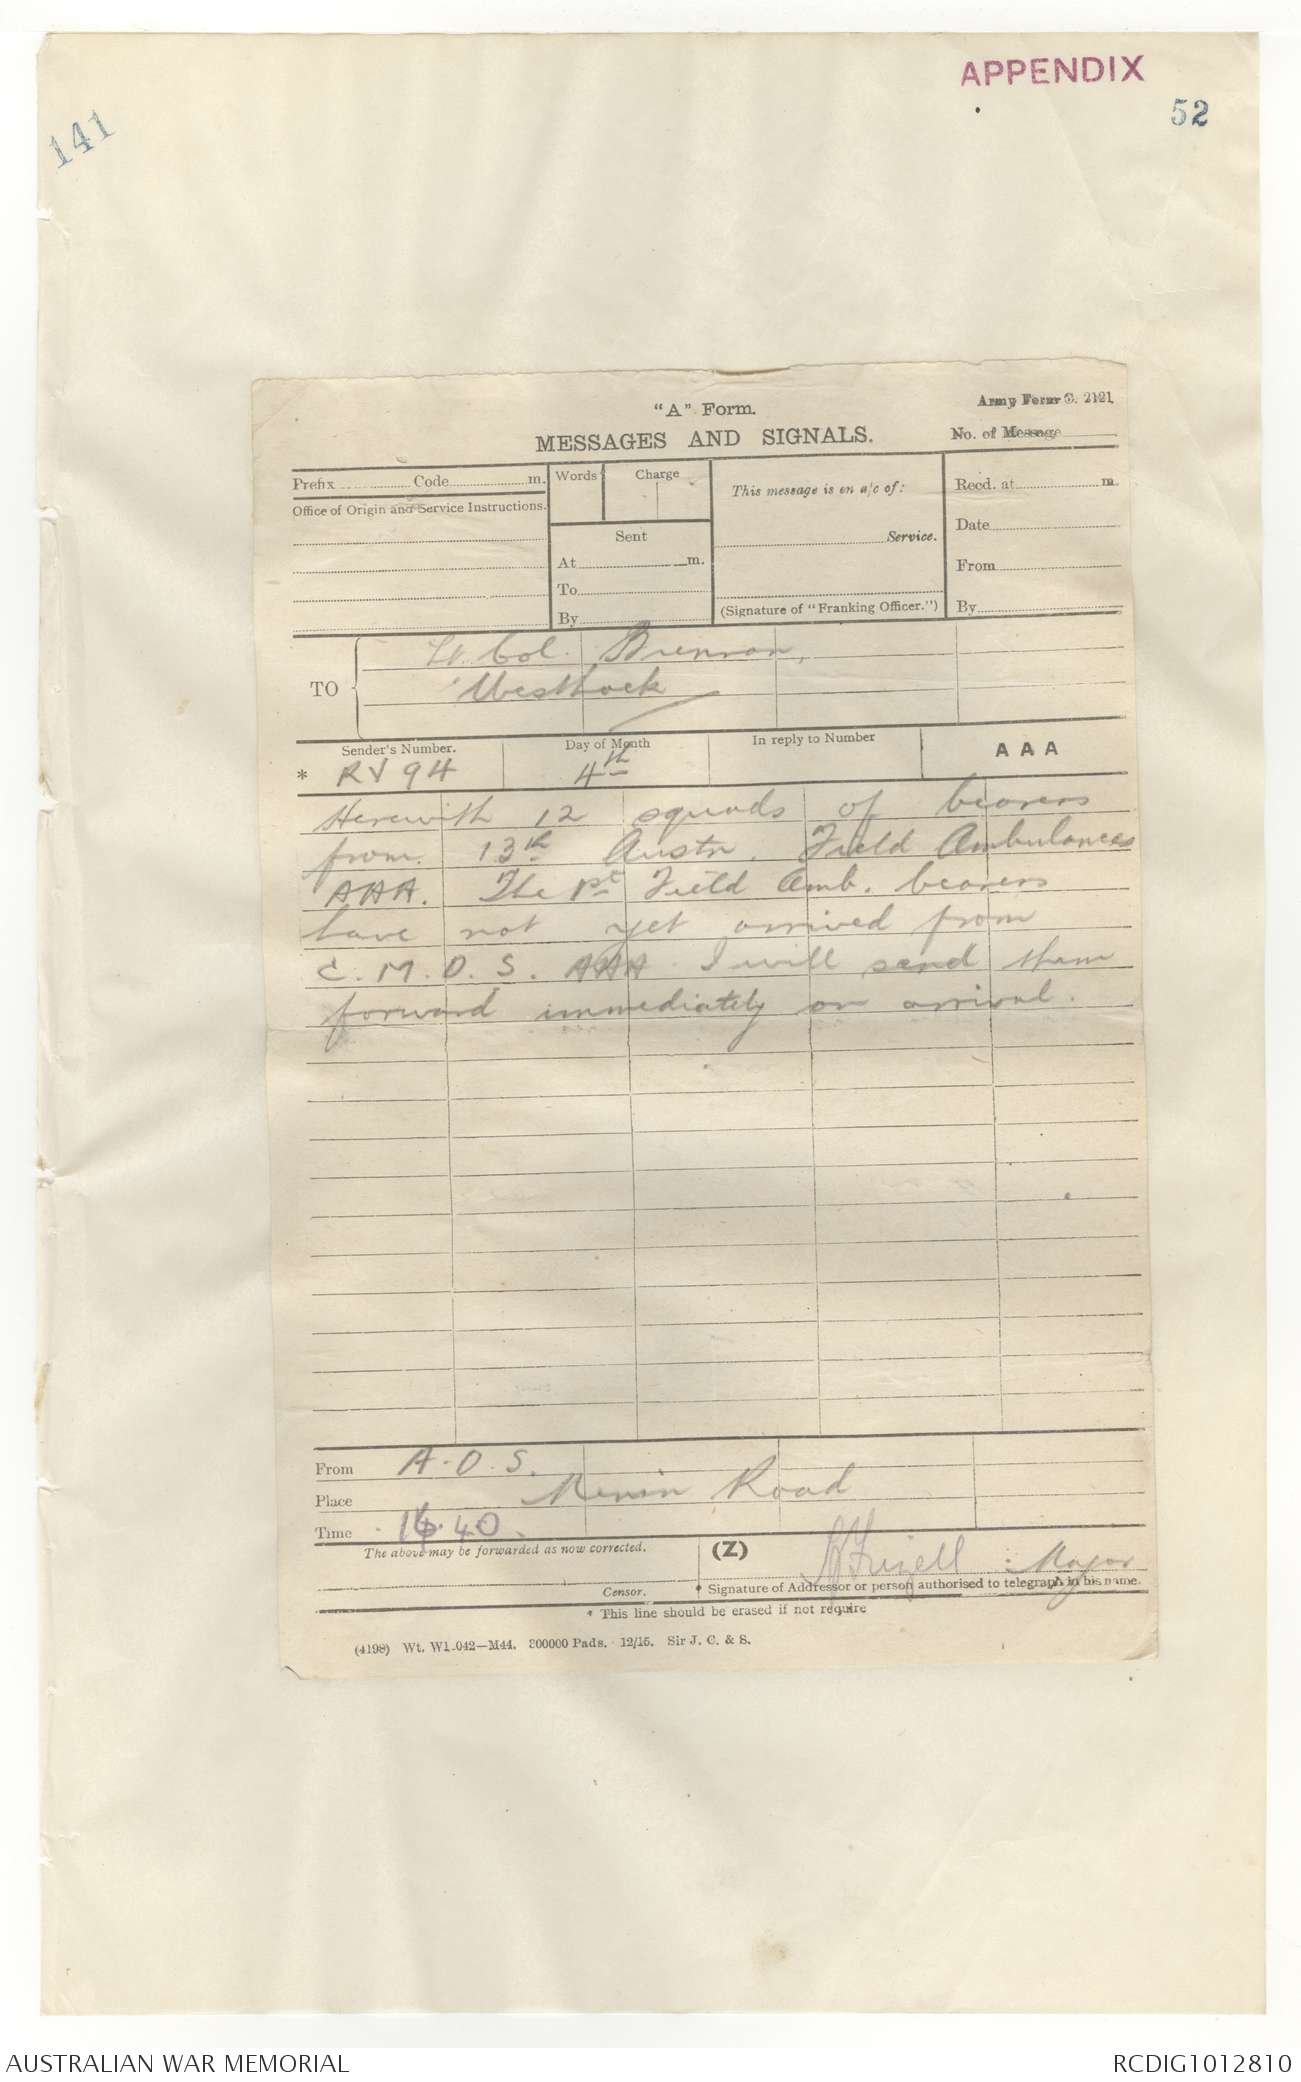 APPENDIX
52
141
"A" Form.
Army Form C. 2121
MESSAGES AND SIGNALS.
No. of Message
Prefix Code m.
Words Charge
This message is on a/c of:
Recd. at m.
Office of Origin and Service Instructions.
Sent
Service.
Date
At m.
From
To
(Signature of "Franking Officer.")
By
By
TO
Lt. Col. Brennan,
Westhoek
Sender's Number.
Day of Month
In reply to Number
AAA
* RV 94
4th
Herewith 12 squads of bearers
from 13th Austn. Field Ambulances
AAA. The 1st Field Amb. bearers
have not yet arrived from
C.M.D.S. AAA I will send them
forward immediately on arrival.
From A.D.S.
Place Menin Road
Time 16.40
The above may be forwarded as now corrected.
(Z)
Frizell Major
Censor.
* Signature of Addressor or person authorised to telegraph in his name.
* This line should be erased if not require
(4198) Wt. W1.042—M44. 300000 Pads. 12/15. Sir J. C. & S.
AUSTRALIAN WAR MEMORIAL
RCDIG1012810